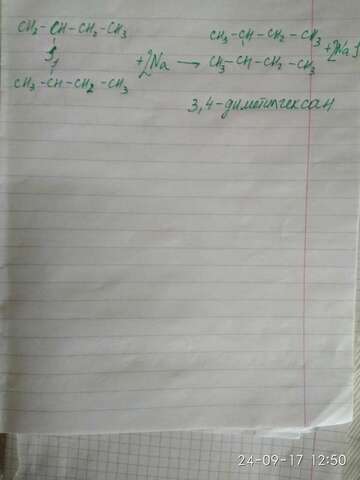 CH₃-CH-CH₂-CH₃
J
J
CH₃-CH-CH₂-CH₃
+2Na →
CH₃-CH-CH₂-CH₃
CH₃-CH-CH₂-CH₃
+2NaJ
3,4-диметилгексан
24-09-17 12:50